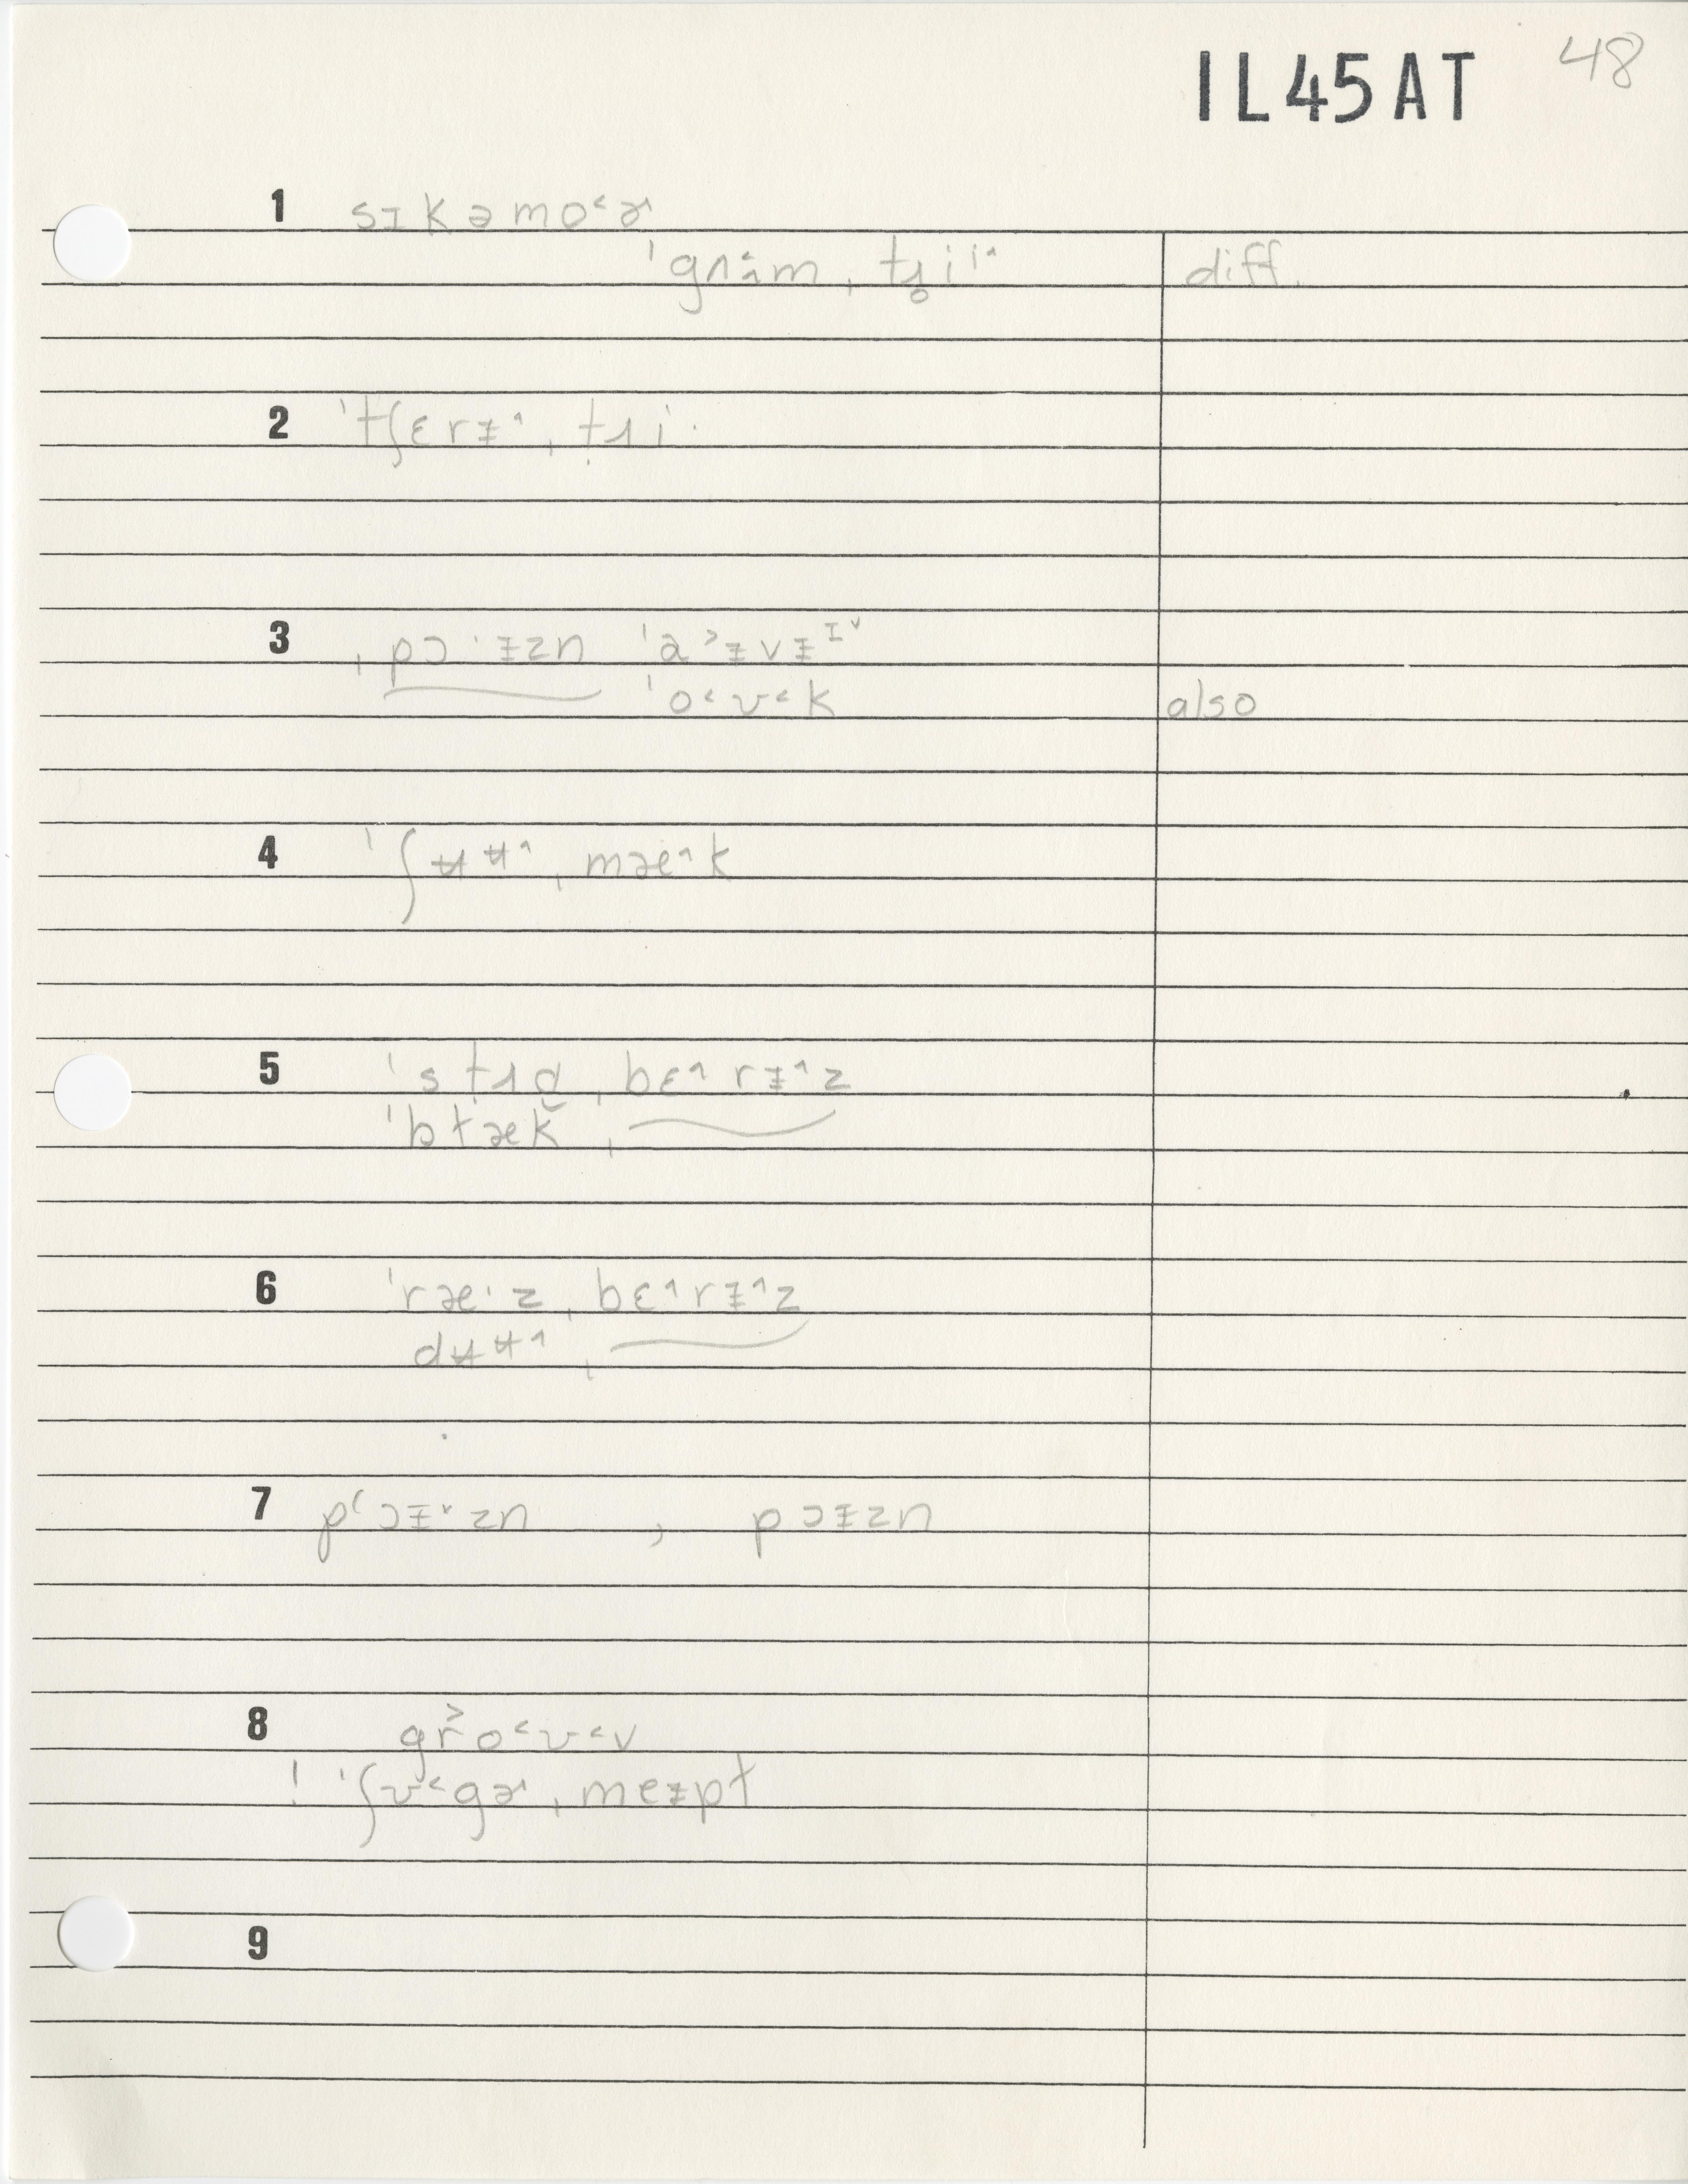 IL45AT 48
1 sɪkəmo˂ɚ
ˈgʌ˄m, tɹ̥ii˄ diff.
2 ˈtʃɛrɪ̵˄, tɹi·
3 ˌpɔ·ɪ̵zn ˈa˃ɪ̵vɪ̵ɪ˅
ˈo˂ʊ˂k also
4 ˈʃʉʉ˄ˌmæ˄k
5 ˈstɹɑˌbɛ˄rɪ̵˄z
ˈbɫæk̆ˌ
6 ˈræ·zˌbɛ˄rɪ̵˄z
dʉʉ˄ˌ
7 pʻɔɪ̵˅zn , pɔɪ̵zn
8 gr˃o˂ʊ˂v
! ˈʃʊ˂gɚˌmeɪ̵pɫ
9